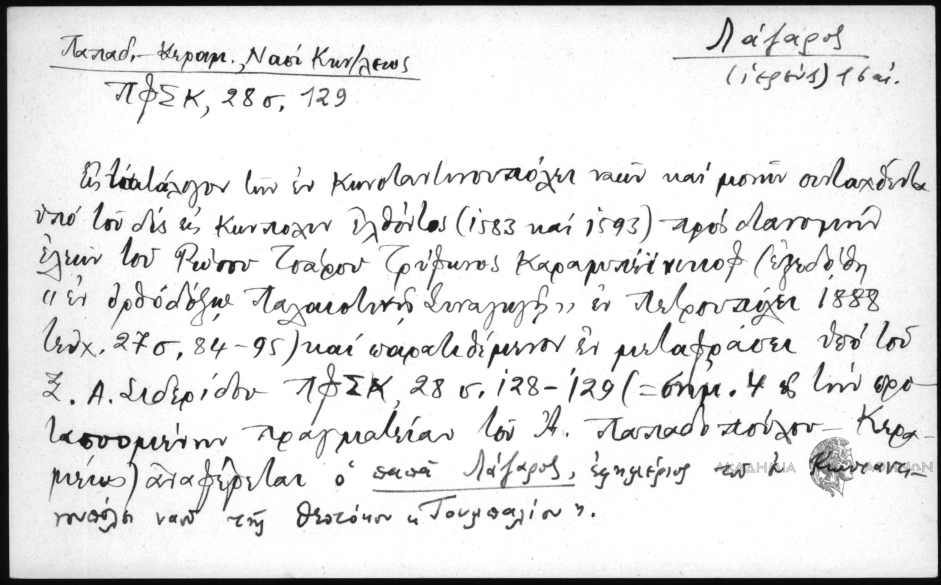 Παπαδ.-Κεραμ., Ναοί Κων/λεως
ΠΦΣΚ, 28 σ. 129
Λάζαρος
(ἱερεύς) 16 αἰ.
Εἰς κατάλογον τῶν ἐν Κωνσταντινουπόλει ναῶν καί μονῶν συνταχθέντα
ὑπό τοῦ δίς εἰς Κων/πολιν ἐλθόντος (1583 καί 1593) πρός διανομήν
ἐλεῶν τοῦ Ρώσου Τσάρου Τρύφωνος (ἐξεδόθη
"ἐν Ὀρθοδόξῳ Παλαιστινῇ Συναγωγῇ" ἐν Πετρουπόλει 1888
τεῦχ. 27 σ. 84-95) καί παρατιθέμενον ἐν μεταφράσει ὑπό τοῦ
Ξ. Α. Σιδερίδου ΠΦΣΚ, 28 σ. 128-129 (= σημ. 4 εἰς τήν προ-
τασσομένην πραγματείαν τοῦ Ἀ. Παπαδοπούλου-Κερα-
μέως) ἀναφέρεται ὁ παπᾶ Λάζαρος, ἐφημέριος τοῦ ἐν Κωνσταντι-
νουπόλει ναοῦ τῆς Θεοτόκου "Τουμπαλίου".
ΑΚΑΔΗΜΙΑ ΑΘΗΝΩΝ